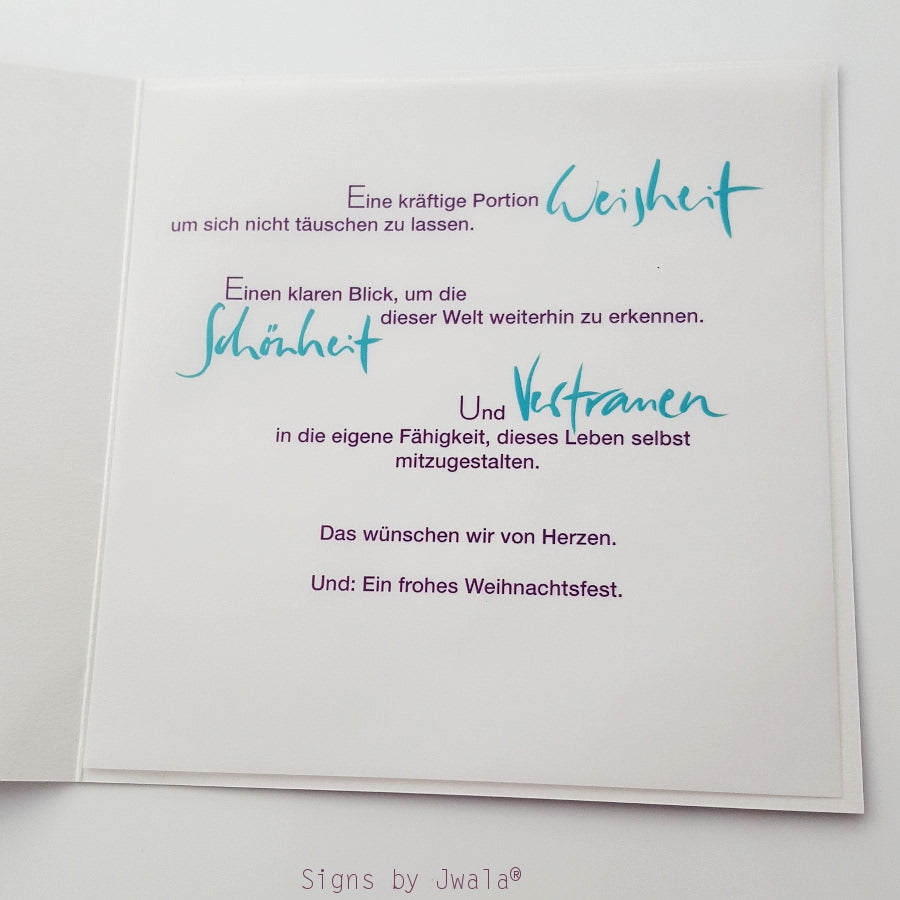 Eine kräftige Portion Weisheit
um sich nicht täuschen zu lassen.
Einen klaren Blick, um die
Schönheit dieser Welt weiterhin zu erkennen.
Und Vertrauen
in die eigene Fähigkeit, dieses Leben selbst
mitzugestalten.
Das wünschen wir von Herzen.
Und: Ein frohes Weihnachtsfest.
Signs by Jwala®